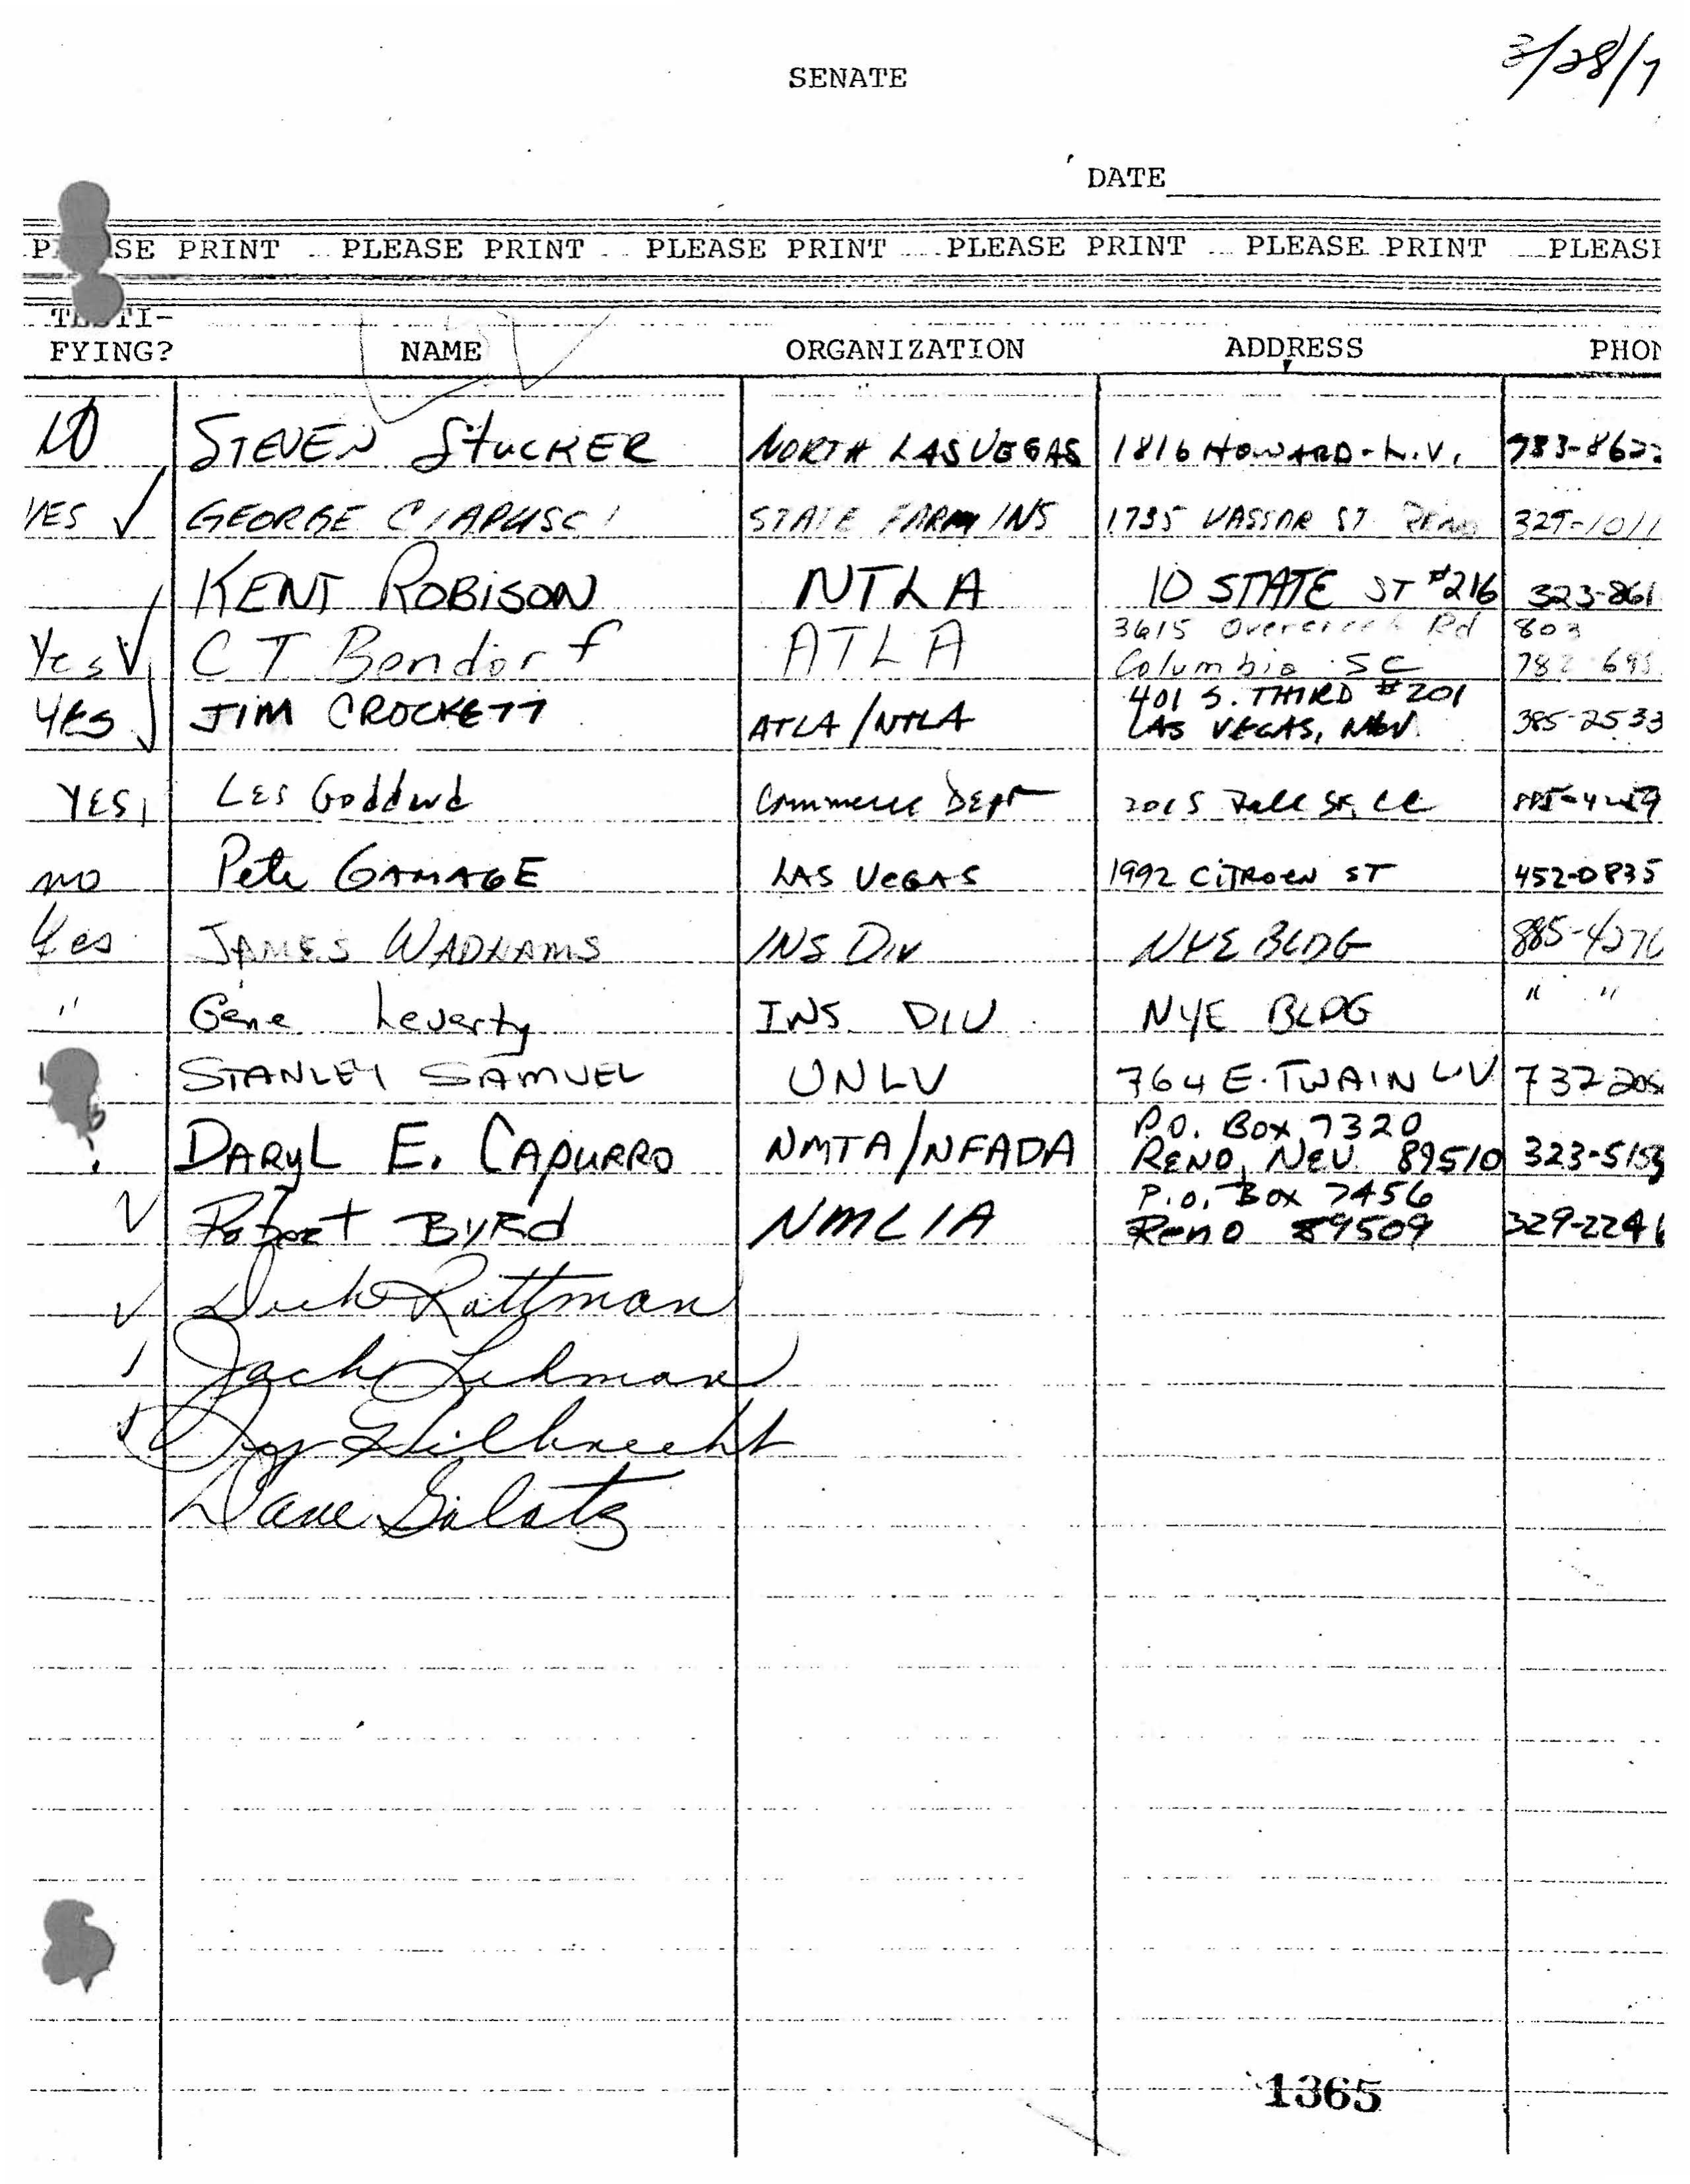 3/28/7
SENATE
DATE
SE PRINT PLEASE PRINT PLEASE PRINT PLEASE PRINT PLEASE PRINT PLEASE
TESTI-
FYING? NAME ORGANIZATION ADDRESS PHON
NO STEVEN STUCKER NORTH LAS VEGAS 1816 HOWARD - L.V.
YES ✓ GEORGE CIAPUSCI STATE FARM INS 1735 VASSAR ST RENO 329-1011
KENT ROBISON NTLA 10 STATE ST #216 323-861
3615 Rd 803
Yes ✓ C T Bendorf ATLA Columbia SC 782 695
401 S. THIRD #201
YES JIM CROCKETT ATLA/NTLA LAS VEGAS, NEV 385-2533
YES Les Goddard Commerce Dept
no Pete GAMAGE LAS VEGAS 1992 CITROEN ST 452-0835
Yes JAMES WADHAMS INS DIV NYE BLDG 885-4270
" Gene Leverty INS DIV NYE BLDG " "
STANLEY SAMUEL UNLV 764 E. TWAIN LV 732
P.O. Box 7320
DARYL E. CAPURRO NMTA/NFADA RENO, NEV 89510 323-5159
P.O. Box 7456
✓ Robert BYRd NMLIA Reno 89509 329-2241
✓ Dick Rottman
Jack Lehman
Hilbrecht
Dave Galatz
1365